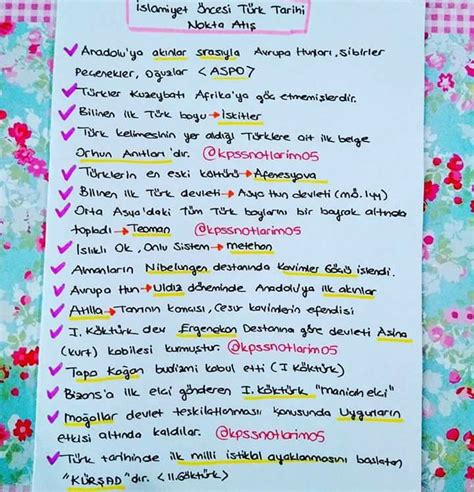 İslamiyet Öncesi Türk Tarihi
Nokta Atış
Anadolu'ya akınlar sırasıyla Avrupa Hunları, Sibirler
Peçenekler, Oğuzlar <ASPO>
Türkler Kuzeybatı Afrika'ya göç etmemişlerdir.
Bilinen ilk Türk boyu → İskitler
Türk kelimesinin yer aldığı Türklere ait ilk belge
Orhun Anıtları'dır. @kpssnotlarim05
Türklerin en eski kültürü → Afenesyova
Bilinen ilk Türk devleti → Asya Hun devleti (mö. 4yy)
Orta Asya'daki Tüm Türk boylarını bir bayrak altında
topladı → Teoman @kpssnotlarim05
Islıklı Ok, Onlu Sistem → metehan
Almanların Nibelungen destanında Kavimler Göçü işlendi.
Avrupa Hun → Uldız döneminde Anadolu'ya ilk akınlar
Atilla → Tanrının kırbacı, Cesur kavimlerin efendisi
I. Köktürk dev Ergenekon Destanına göre devleti Asina
(kurt) kabilesi kurmuştur. @kpssnotlarim05
Tapo Kağan budizmi kabul etti (I Köktürk)
Bizans'a ilk elçi gönderen I. Köktürk "maniah elçi"
moğollar devlet teşkilatlanması konusunda Uygurların
etkisi altında kaldılar. @kpssnotlarim05
Türk tarihinde ilk milli istiklal ayaklanmasını başlatan
"KÜRŞAD" dır. <II. Göktürk>